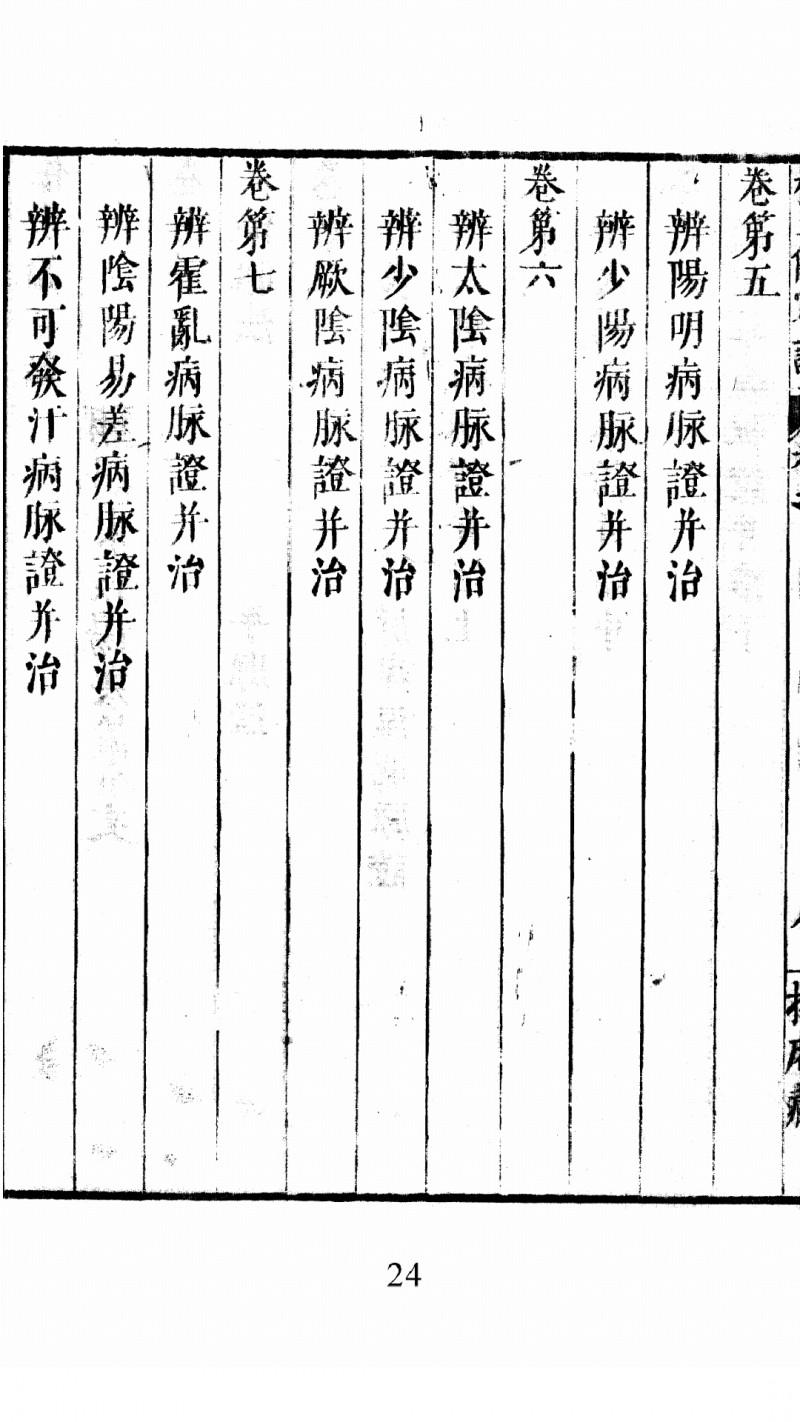 卷第五
辨陽明病脉證并治
辨少陽病脉證并治
卷第六
辨太陰病脉證并治
辨少陰病脉證并治
辨厥陰病脉證并治
卷第七
辨霍亂病脉證并治
辨陰陽易差病脉證并治
辨不可發汗病脉證并治
24